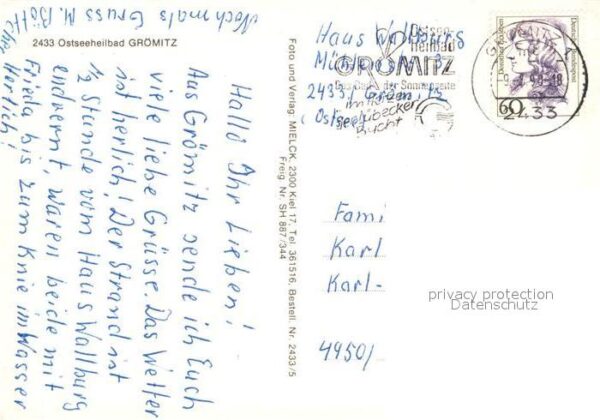 Nochmals Gruss M.
2433 Ostseeheilbad GRÖMITZ
Hallo Ihr Lieben!
Aus Grömitz sende ich Euch
viele liebe Grüsse. Das Wetter
ist herlich! Der Strand ist
1/2 Stunde vom Haus Wallburg
endvernt, waren beide mit
Frieda bis zum Knie im Wasser
Herrlich!
Foto und Verlag: MIELCK, 2300 Kiel 17, Tel. 361516, Bestell. Nr. 2433/5
Freig. Nr. SH 887/344
Haus Wallburg
2433/ Grömitz
(Ostsee
Ostsee-
heilbad
GRÖMITZ
Das Bad der Sonnenseite
in der
Lübecker
Bucht
2433
Deutsche Bundespost
60
Fami
Karl
Karl-
4950/
privacy protection
Datenschutz